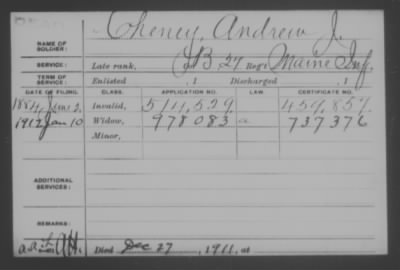 Cheney, Andrew J.
NAME OF SOLDIER:
SERVICE: Late rank, B 27 Reg't Maine Inf.
TERM OF SERVICE: Enlisted , 1 Discharged , 1
DATE OF FILING. CLASS. APPLICATION NO. LAW. CERTIFICATE NO.
1884, June 2, Invalid, 514,529 459,857
1912 Jan 10 Widow, 978083 a 737376
Minor,
ADDITIONAL SERVICES:
REMARKS:
Died Dec 27, 1911, at